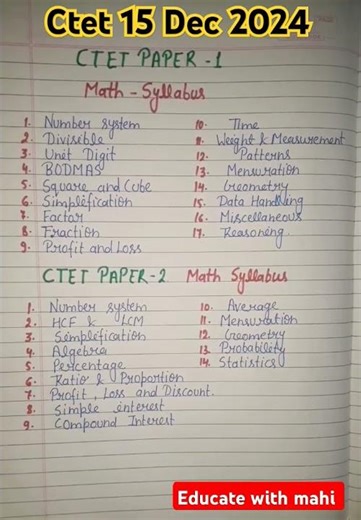 Ctet 15 Dec 2024
CTET PAPER - 1
Math - Syllabus
1. Number system
2. Divisible
3. Unit Digit
4. BODMAS
5. Square and Cube
6. Simplification
7. Factor
8. Fraction
9. Profit and Loss
10. Time
11. Weight & Measurement
12. Patterns
13. Mensuration
14. Geometry
15. Data Handling
16. Miscellaneous
17. Reasoning
CTET PAPER - 2 Math Syllabus
1. Number system
2. HCF & LCM
3. Simplification
4. Algebra
5. Percentage
6. Ratio & Proportion
7. Profit, Loss and Discount.
8. Simple interest
9. Compound Interest
10. Average
11. Mensuration
12. Geometry
13. Probability
14. Statistics
Educate with mahi